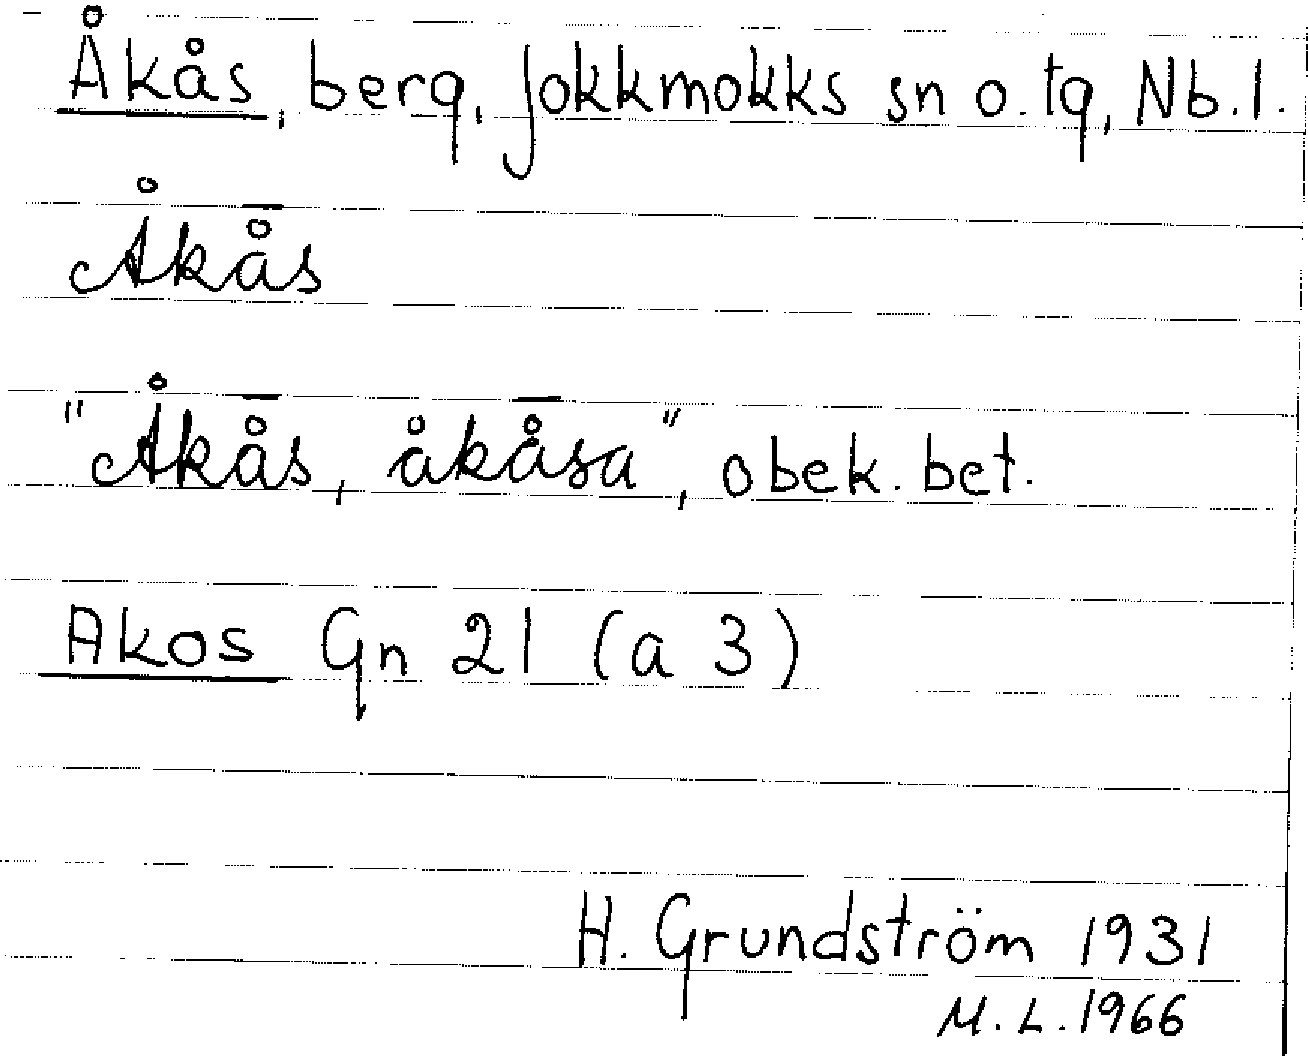 Åkås, berg, Jokkmokks sn o. tg, Nb. l.
Åkå̄s
"Åkå̄s, åkå̄sa", obek. bet.
Akos Gn 21 (a 3)
H. Grundström 1931
M. L. 1966